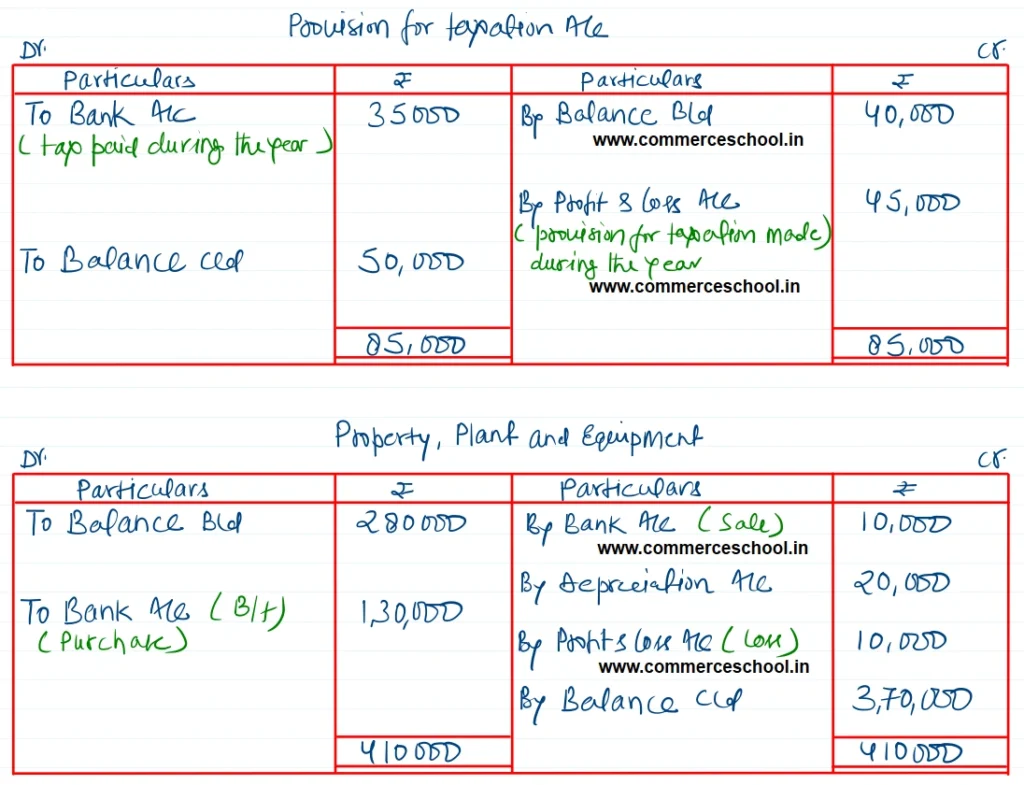 Provision for taxation A/c
Dr. Cr.
Particulars ₹ Particulars ₹
To Bank A/c 35000 By Balance B/d 40,000
(tax paid during the year) www.commerceschool.in
By Profit & loss A/c 45,000
(provision for taxation made)
To Balance c/d 50,000 during the year
www.commerceschool.in
85,000 85,000
Property, Plant and Equipment
Dr. Cr.
Particulars ₹ Particulars ₹
To Balance B/d 280000 By Bank A/c (Sale) 10,000
www.commerceschool.in
By Depreciation A/c 20,000
To Bank A/c (B/f) 1,30,000
(Purchase) By Profit & loss A/c (loss) 10,000
www.commerceschool.in
By Balance c/d 3,70,000
410000 410000